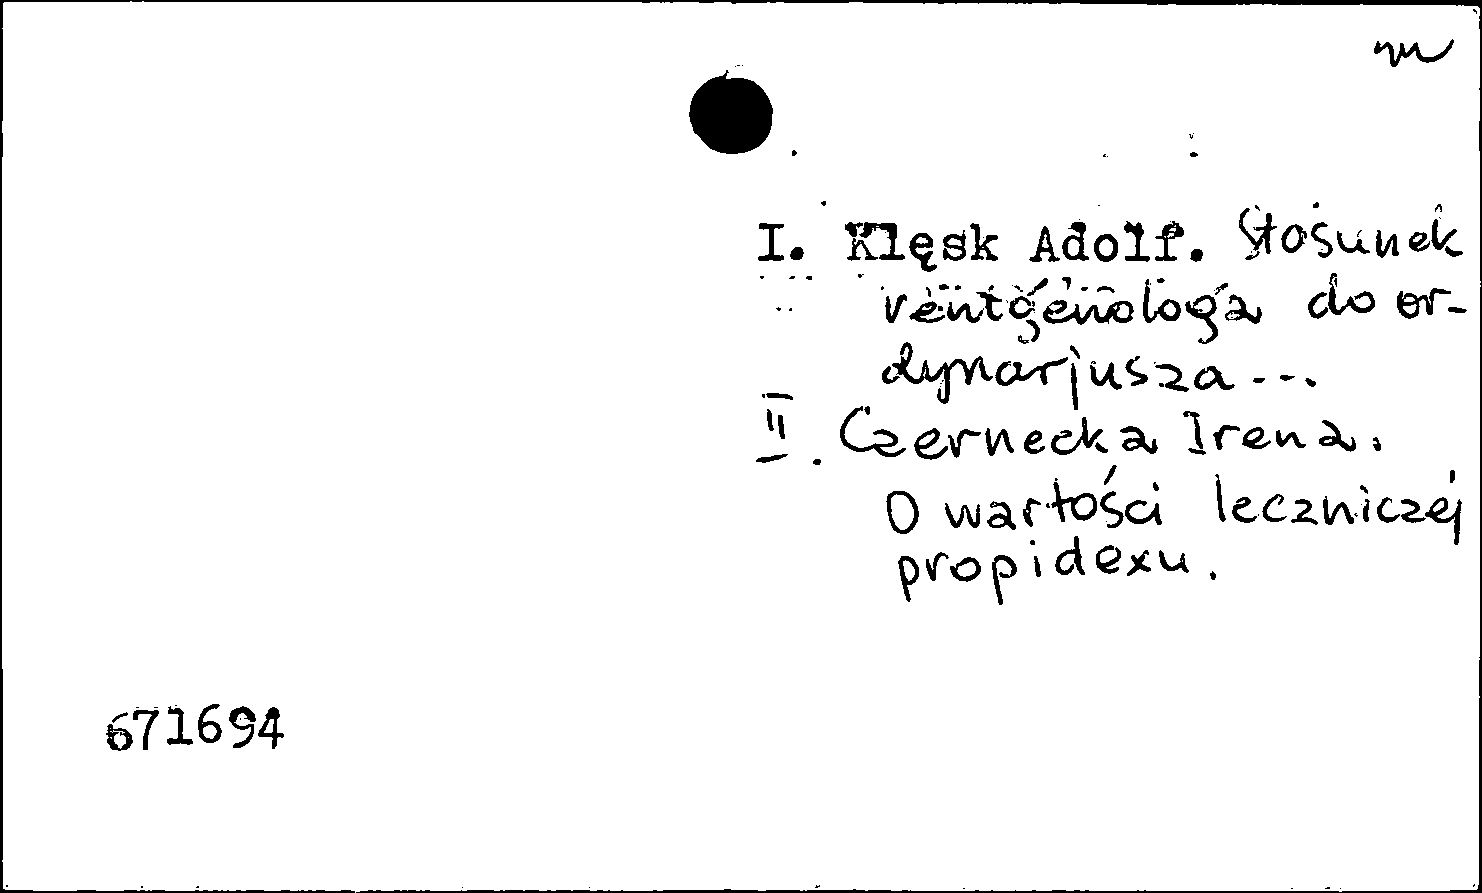 I. Klęsk Adolf. Stosunek
rentgenologa do or-
dynarjusza...
II. Czernecka Irena.
O wartości leczniczej
propidexu.
671694